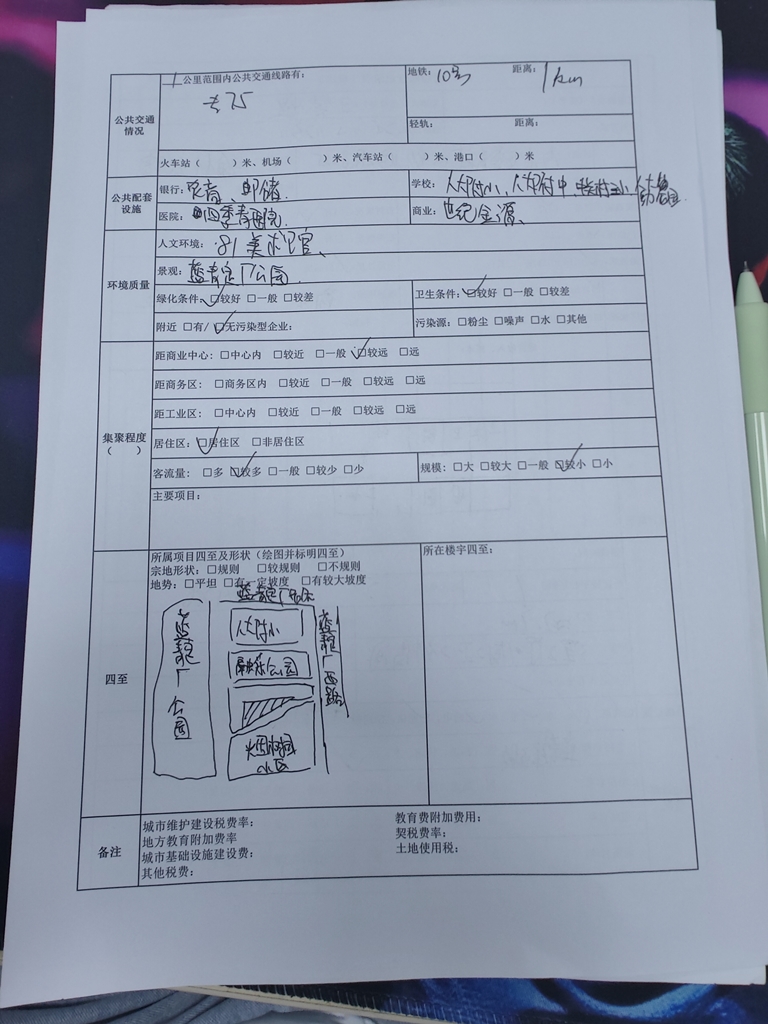 公共交通情况
1公里范围内公共交通线路有：
专75
地铁：10号 距离：1km
轻轨： 距离：
火车站（ ）米、机场（ ）米、汽车站（ ）米、港口（ ）米
公共配套设施
银行：农商、邮储.
学校：人大附小、人大附中
医院：四季青医院.
商业：世纪金源、
环境质量
人文环境：81美术官、
景观：蓝靛厂公园.
绿化条件：☑较好 □一般 □较差
卫生条件：☑较好 □一般 □较差
附近 □有/☑无污染型企业：
污染源：□粉尘 □噪声 □水 □其他
集聚程度（ ）
距商业中心：□中心内 □较近 □一般 ☑较远 □远
距商务区：□商务区内 □较近 □一般 □较远 □远
距工业区：□中心内 □较近 □一般 □较远 □远
居住区：☑居住区 □非居住区
客流量：□多 ☑较多 □一般 □较少 □少
规模：□大 □较大 □一般 ☑较小 □小
主要项目：
四至
所属项目四至及形状（绘图并标明四至）
宗地形状：□规则 □较规则 □不规则
地势：□平坦 □有一定坡度 □有较大坡度
所在楼宇四至：
蓝靛厂
蓝靛厂公园
人大附小
公园
蓝靛厂西路
小区
备注
城市维护建设税费率：
教育费附加费用：
地方教育附加费率
契税费率：
城市基础设施建设费：
土地使用税：
其他税费：